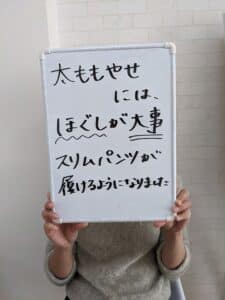 太ももやせ
には、
ほぐしが大事
スリムパンツが
履けるようになりました